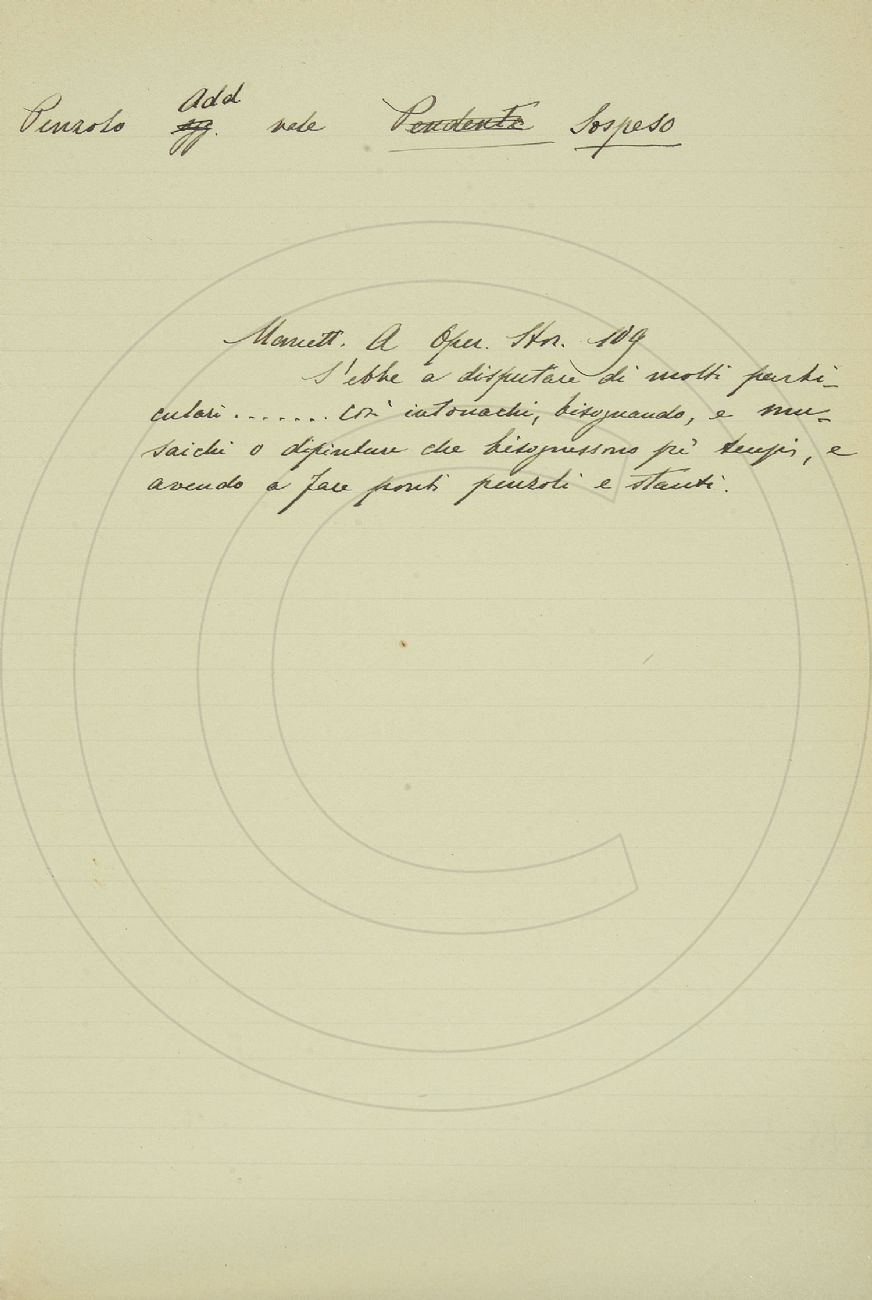 Penzolo Add agg. vale Pendente Sospeso
Manett. A Oper. Stor. 109
S'ebbe a disputare di molti parti-
culari ....... così intonachi, bisognando, e mu-
saichi o dipinture che bisognessono pe' tempi, e
avendo a fare ponti penzoli e stanti.